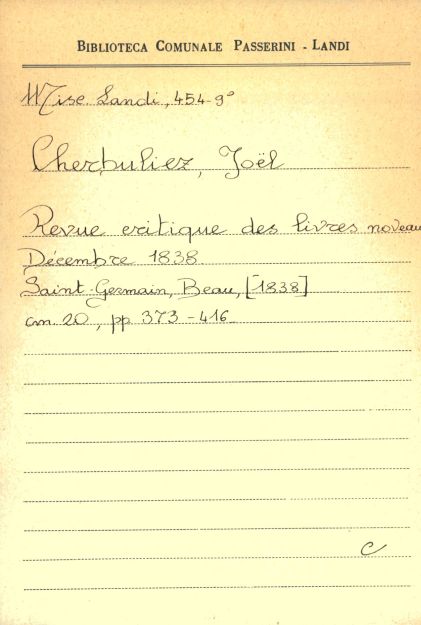 BIBLIOTECA COMUNALE PASSERINI - LANDI
Misc. Landi, 454-9°
Cherbuliez, Joël
Revue critique des livres noveau
Décembre 1838
Saint-Germain, Beau, [1838]
cm. 20, pp. 373-416
C